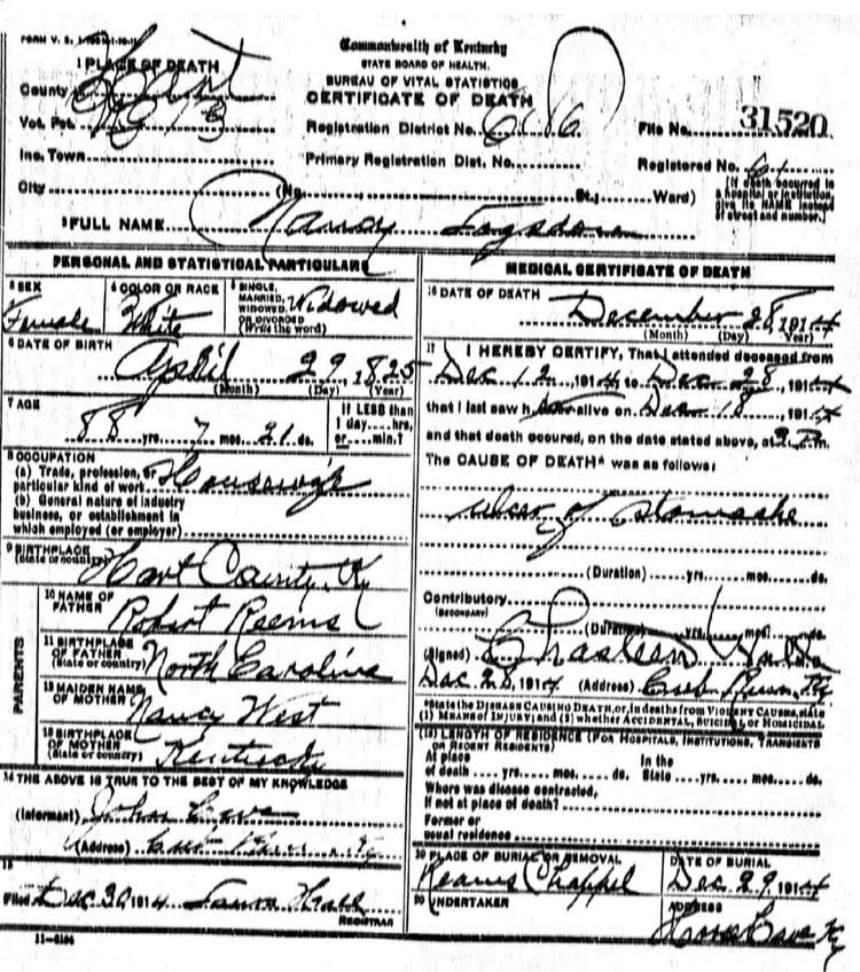 Commonwealth of Kentucky
STATE BOARD OF HEALTH.
BUREAU OF VITAL STATISTICS
CERTIFICATE OF DEATH
FORM V. S.
1 PLACE OF DEATH
County Hart
Vot. Pct.
Inc. Town
City (No. St.; Ward)
Registration District No. 616
Primary Registration Dist. No.
File No. 31520
Registered No. 61
[If death occurred in a hospital or institution, give its NAME instead of street and number.]
2 FULL NAME Nancy Logsdon
PERSONAL AND STATISTICAL PARTICULARS
3 SEX Female
4 COLOR OR RACE White
5 SINGLE, MARRIED, WIDOWED, OR DIVORCED (Write the word) Widowed
6 DATE OF BIRTH April 29, 1825
(Month) (Day) (Year)
7 AGE 88 yrs. 7 mos. 21 ds.
If LESS than 1 day....hrs, or....min.?
8 OCCUPATION
(a) Trade, profession, or particular kind of work Housewife
(b) General nature of industry business, or establishment in which employed (or employer)
9 BIRTHPLACE (State or country) Hart County, Ky
PARENTS
10 NAME OF FATHER Robert Reems
11 BIRTHPLACE OF FATHER (State or country) North Caroline
12 MAIDEN NAME OF MOTHER Nancy West
13 BIRTHPLACE OF MOTHER (State or country) Kentucky
14 THE ABOVE IS TRUE TO THE BEST OF MY KNOWLEDGE
(Informant) John
(Address) Ky
15
Filed Dec 30 1914
REGISTRAR
11-6184
MEDICAL CERTIFICATE OF DEATH
16 DATE OF DEATH December 28, 1914
(Month) (Day) Year)
17 I HEREBY CERTIFY, That I attended deceased from
Dec 12, 1914 to Dec 28, 1914
that I last saw h alive on Dec 18, 1914
and that death occured, on the date stated above, at 2 P.m.
The CAUSE OF DEATH* was as follows:
ulcer of stomache
(Duration) yrs. mos. ds.
Contributory
(SECONDARY)
(Duration) yrs. mos. ds.
(Signed) Chasteen M. D.
Dec 28, 1914 (Address) Cub Run, Ky
*State the DISEASE CAUSING DEATH, or, in deaths from VIOLENT CAUSES, state (1) MEANS OF INJURY; and (2) whether ACCIDENTAL, SUICIDAL or HOMICIDAL
(18) LENGTH OF RESIDENCE (FOR HOSPITALS, INSTITUTIONS, TRANSIENTS OR RECENT RESIDENTS)
At place of death yrs. mos. ds. In the State yrs. mos. ds.
Where was disease contracted, If not at place of death?
Former or usual residence
PLACE OF BURIAL OR REMOVAL Reams Chappel
DATE OF BURIAL Dec. 29, 1914
20 UNDERTAKER
ADDRESS Horse Cave Ky